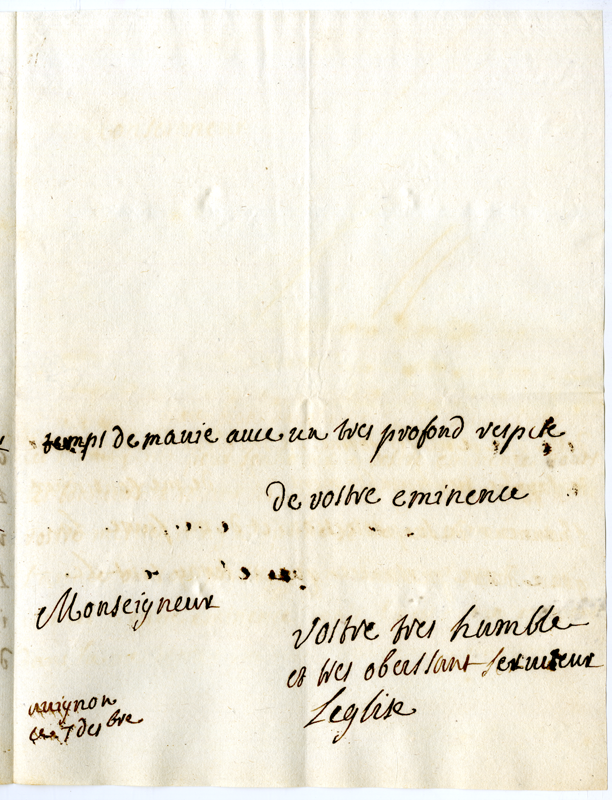 temps de ma uie auec un tres profond respect
de vostre eminence
Monseigneur
vostre tres humble
et tres obeissant seruiteur
Leglise
auignon
ce 7 desbre